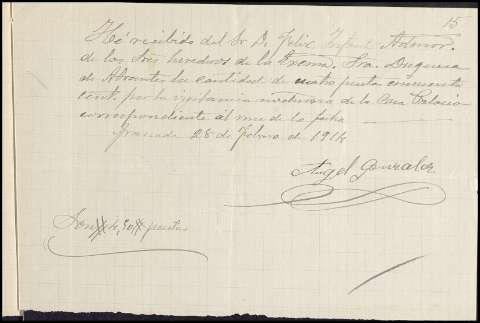 15
He recibido del Sr. D. Felix Infant Admor.
de los Sres herederos de la Excma. Sra. Duquesa
de Abrantes la cantidad de cuatro pesetas cincuenta
cent. por la vigilancia nocturna de la Casa Palacio
correspondiente al mes de la fecha
Granada 28 de Febrero de 1914
Angel Gonzalez
Son # 4,50 # pesetas